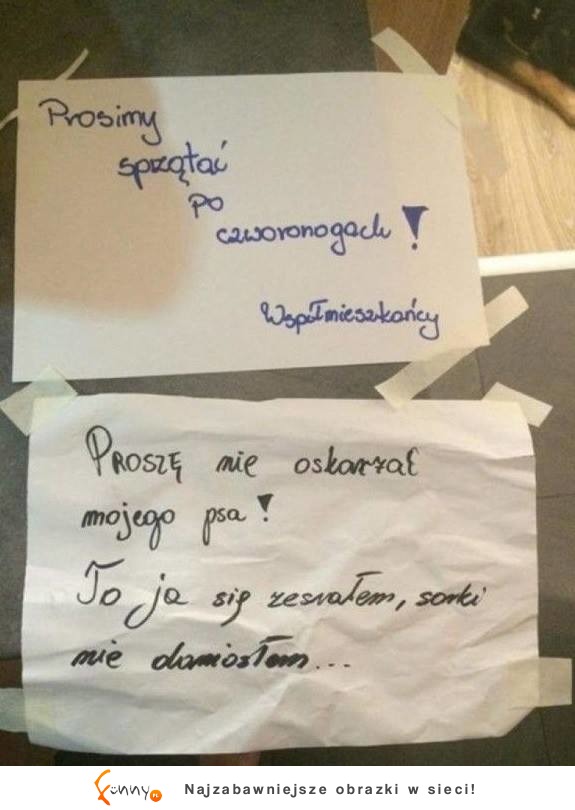 Prosimy
sprzątać
po
czworonogach!
Współmieszkańcy
PROSZĘ nie oskarżać
mojego psa!
To ja się zesrałem, sorki
nie doniosłem...
funny.pl Najzabawniejsze obrazki w sieci!